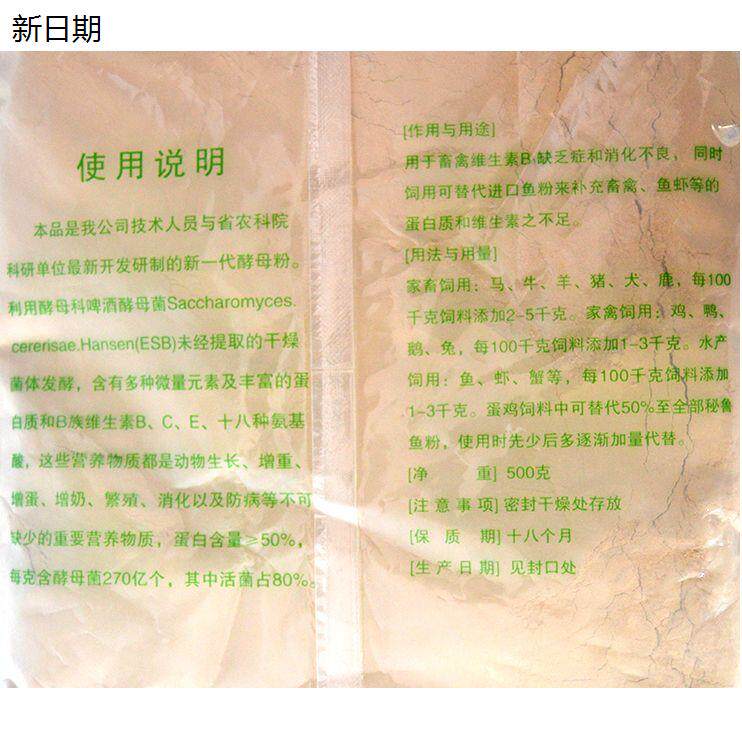 新日期
使用说明
本品是我公司技术人员与省农科院
科研单位最新开发研制的新一代酵母粉。
利用酵母科啤酒酵母菌Saccharomyces.
cererisae.Hansen(ESB)未经提取的干燥
菌体发酵，含有多种微量元素及丰富的蛋
白质和B族维生素B、C、E、十八种氨基
酸，这些营养物质都是动物生长、增重、
增蛋、增奶、繁殖、消化以及防病等不可
缺少的重要营养物质，蛋白含量≥50%，
每克含酵母菌270亿个，其中活菌占80%。
[作用与用途]
用于畜禽维生素B缺乏症和消化不良， 同时
饲用可替代进口鱼粉来补充畜禽、鱼虾等的
蛋白质和维生素之不足。
[用法与用量]
家畜饲用：马、牛、羊、猪、犬、鹿，每100
千克饲料添加2-5千克。家禽饲用：鸡、鸭、
鹅、兔，每100千克饲料添加1-3千克。水产
饲用：鱼、虾、蟹等，每100千克饲料添加
1-3千克。蛋鸡饲料中可替代50%至全部秘鲁
鱼粉，使用时先少后多逐渐加量代替。
[净 重] 500克
[注意事项] 密封干燥处存放
[保 质 期] 十八个月
[生产日期] 见封口处